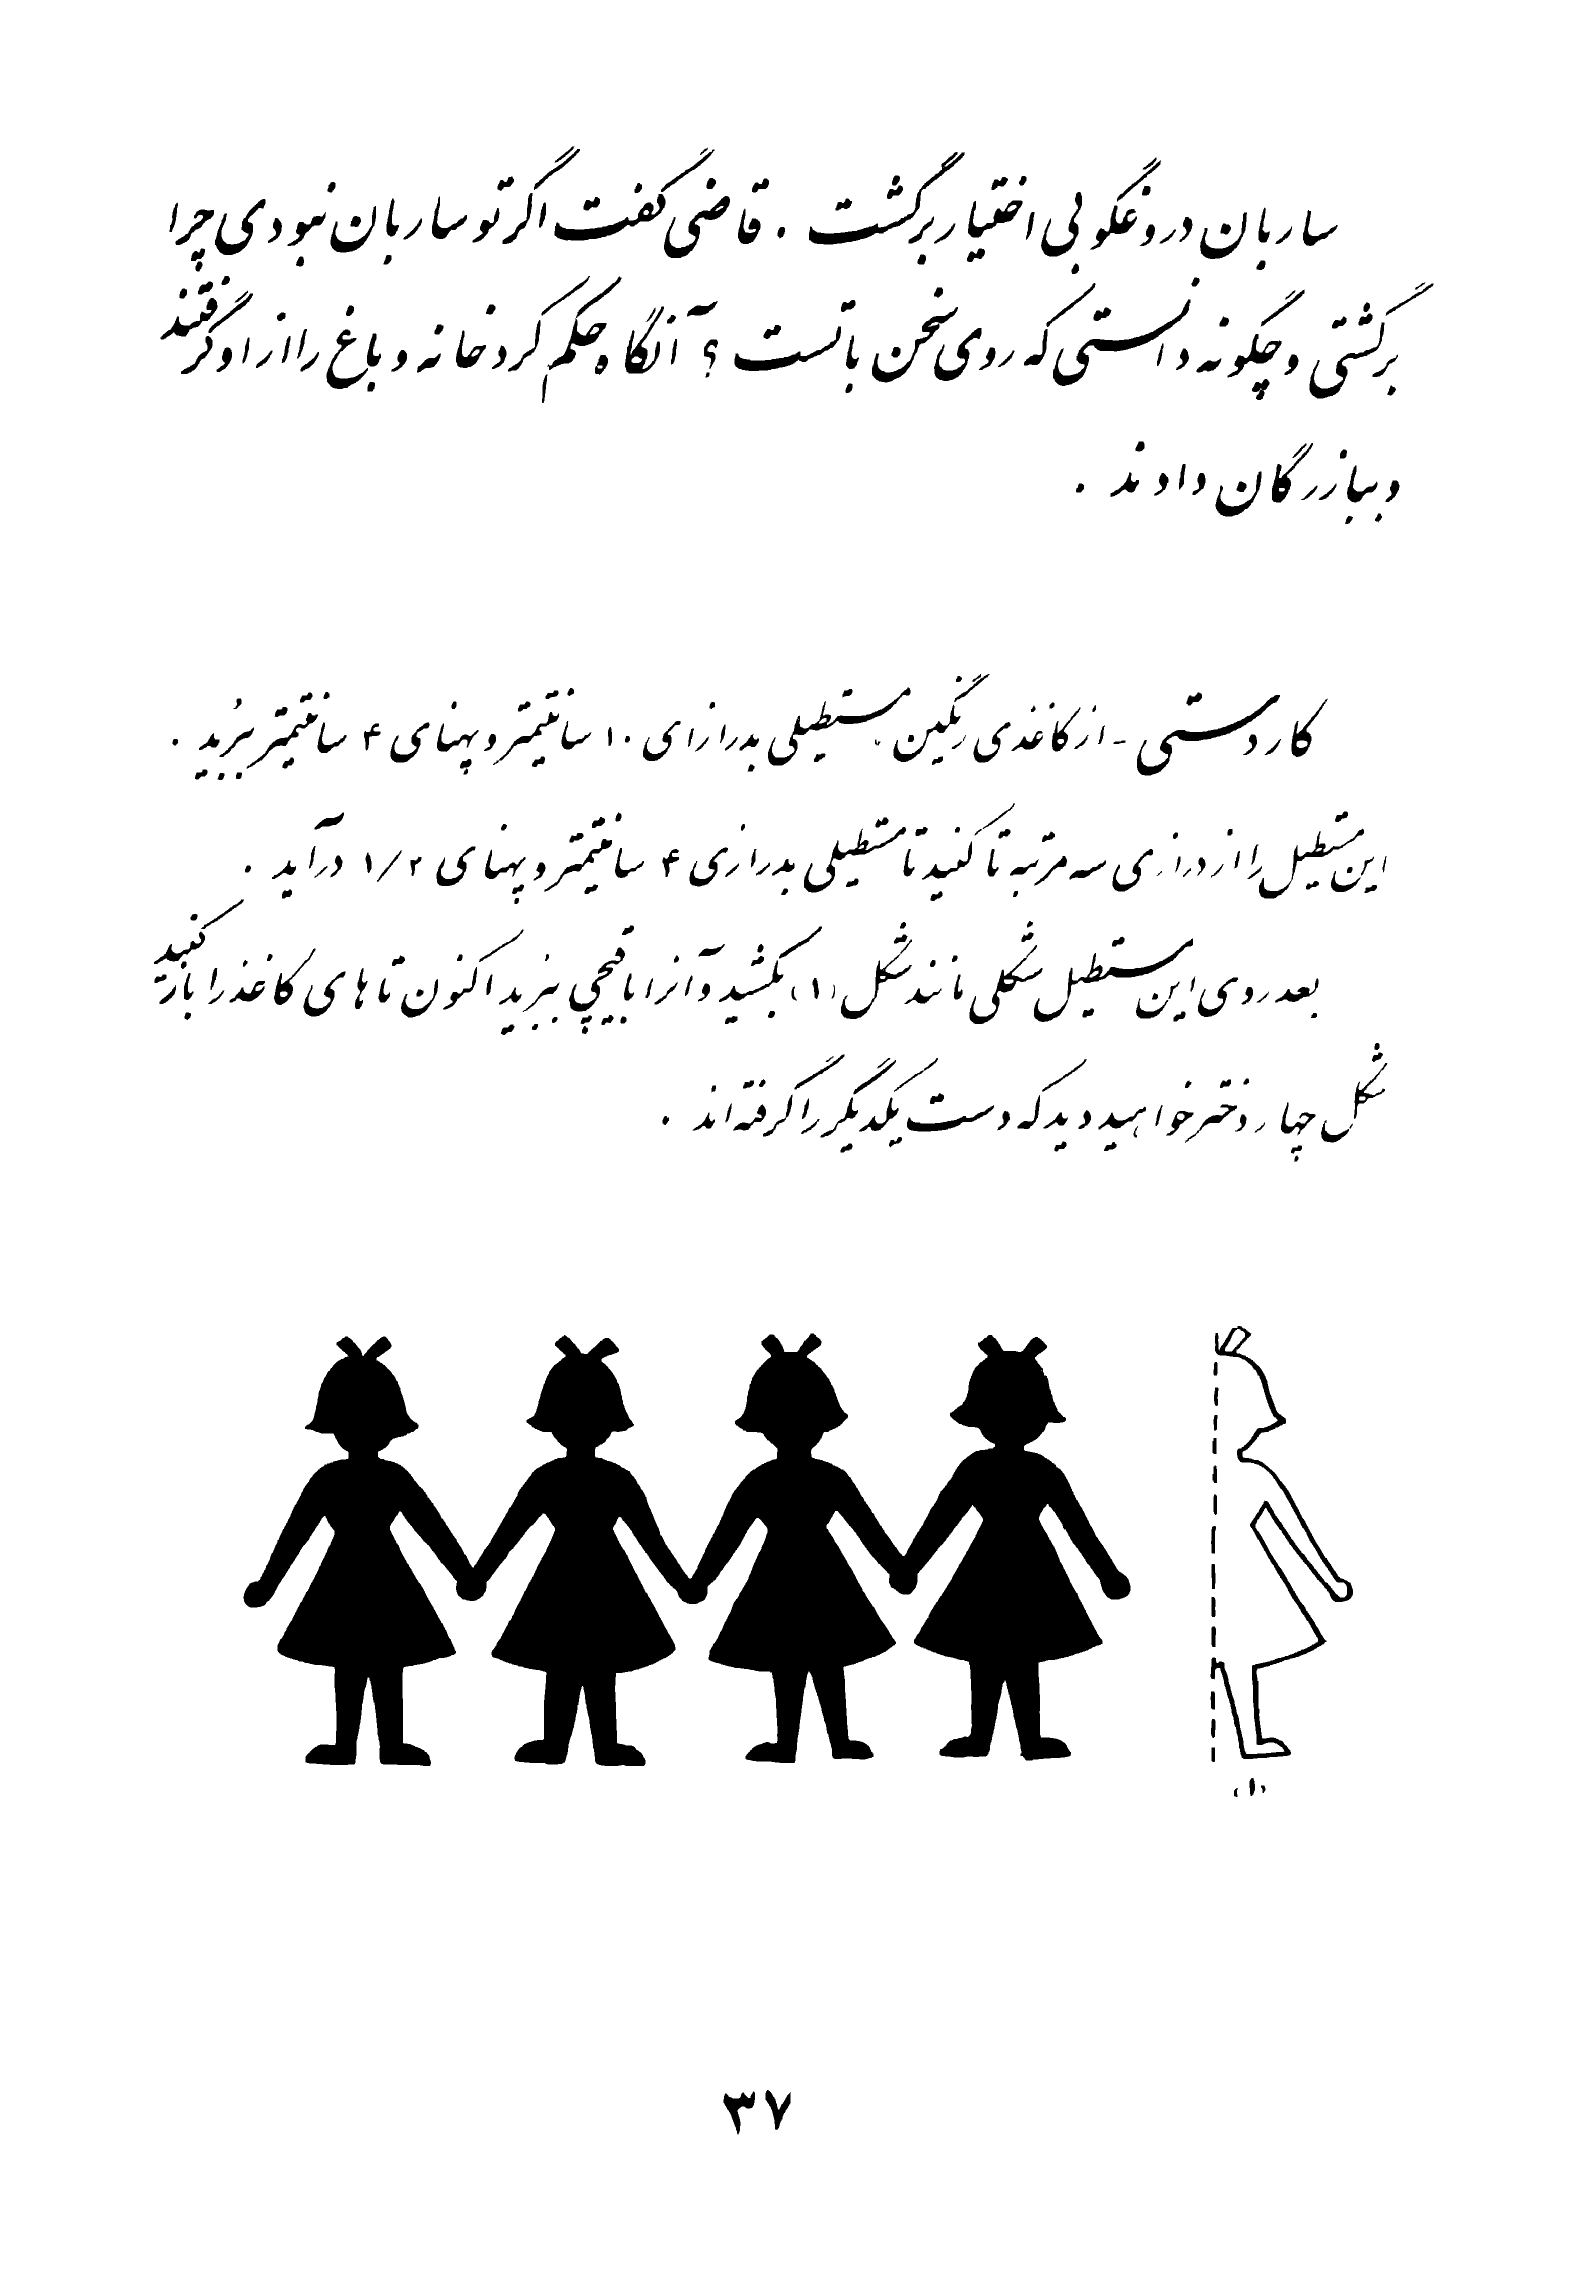 ساربان دروغگو بی اختیار برگشت . قاضی گفت اگر تو ساربان نبودی چرا
برگشتی و چگونه دانستی که روی سخن با تست ؟ آنگاه حکم کرد خانه و باغ را از او گرفتند
و ببازرگان دادند .
کاردستی - از کاغذی رنگین مستطیلی بدرازای ۱۰ سانتیمتر و پهنای ۴ سانتیمتر ببُرید .
این مستطیل را از درازی سه مرتبه تا کنید تا مستطیلی بدرازی ۴ سانتیمتر و پهنای ۱/۲ درآید .
بعد روی این مستطیل شکلی مانند شکل (۱) بکشید و آنرا با قیچی ببرید اکنون تاهای کاغذ را باز کنید
شکل چهار دختر خواهید دید که دست یکدیگر را گرفته‌اند .
(۱)
۳۷